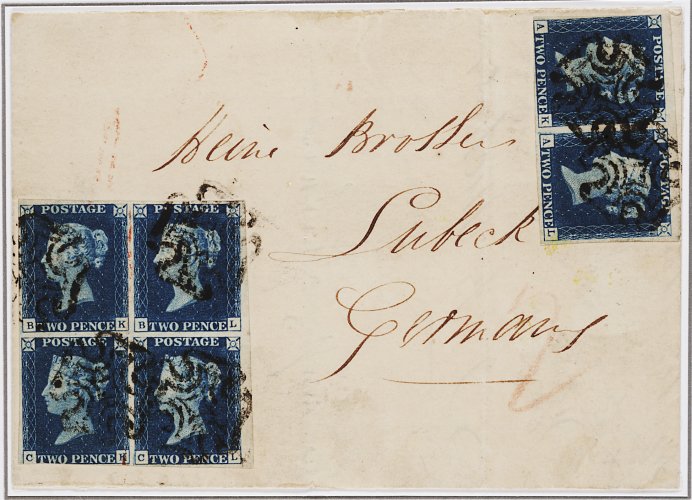 Heine Brothers
Lubeck
Germany
A TWO PENCE K
POSTAGE
A TWO PENCE L
POSTAGE
POSTAGE POSTAGE
B TWO PENCE K B TWO PENCE L
C TWO PENCE K C TWO PENCE L